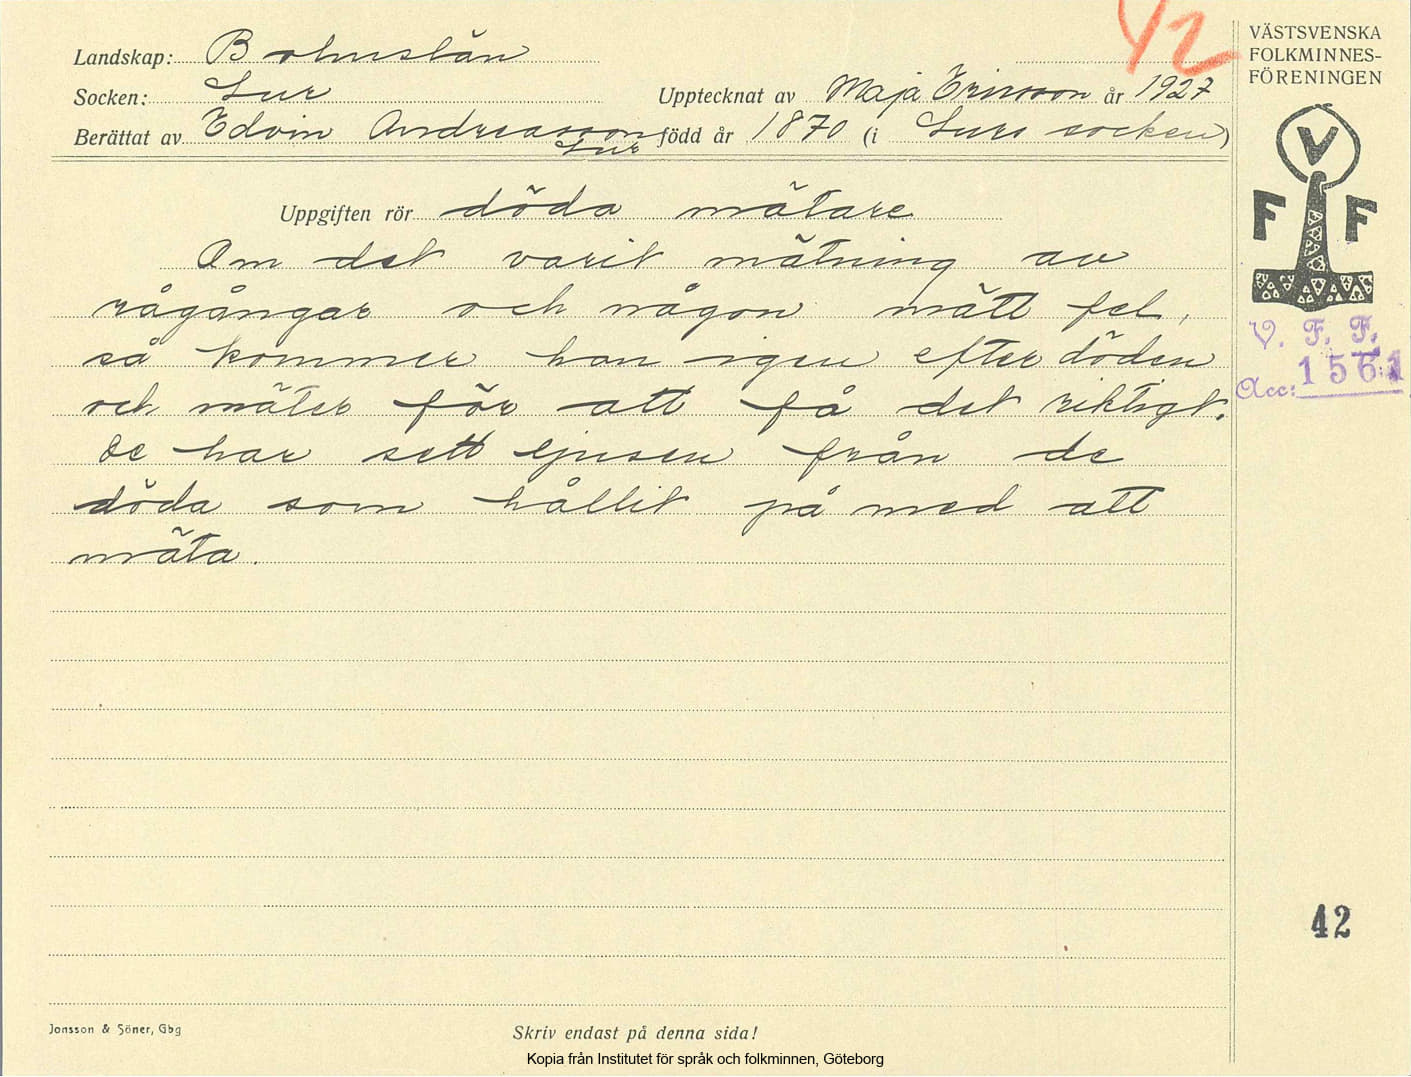 42
Landskap: Bohuslän
Socken: Lur
Upptecknat av Maja Ericsson år 1927
Berättat av Edvin Andreasson född år 1870 (i Lurs socken)
Lur
Uppgiften rör döda mätare
Om det varit mätning av
rågångar och någon mätt fel,
så kommer han igen efter döden
och mäter för att få det riktigt.
De har sett ljusen från de
döda som hållit på med att
mäta.
VÄSTSVENSKA
FOLKMINNES-
FÖRENINGEN
V
F F
V. F. F.
Acc: 1561
42
Jonsson & Söner, Gbg
Skriv endast på denna sida!
Kopia från Institutet för språk och folkminnen, Göteborg